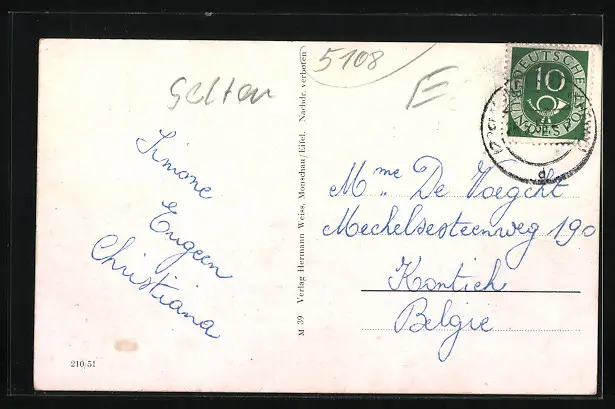 5108
E
Selten
DEUTSCHE
10
BUNDESPOST
Simone
Eugeen
Christiana
Mme De Voeght
Mechelsesteenweg 190
Kontich
Belgie
M 39 Verlag Hermann Weiss, Monschau/Eifel. Nachdr. verboten
210/51